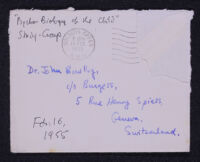 "Psycho Biology of the Child"
Study-Group.
Dr. John Bowlby,
c/o Burgess,
5 Rue Henry Spiess,
Geneva,
Switzerland.
Feb. 16,
1955